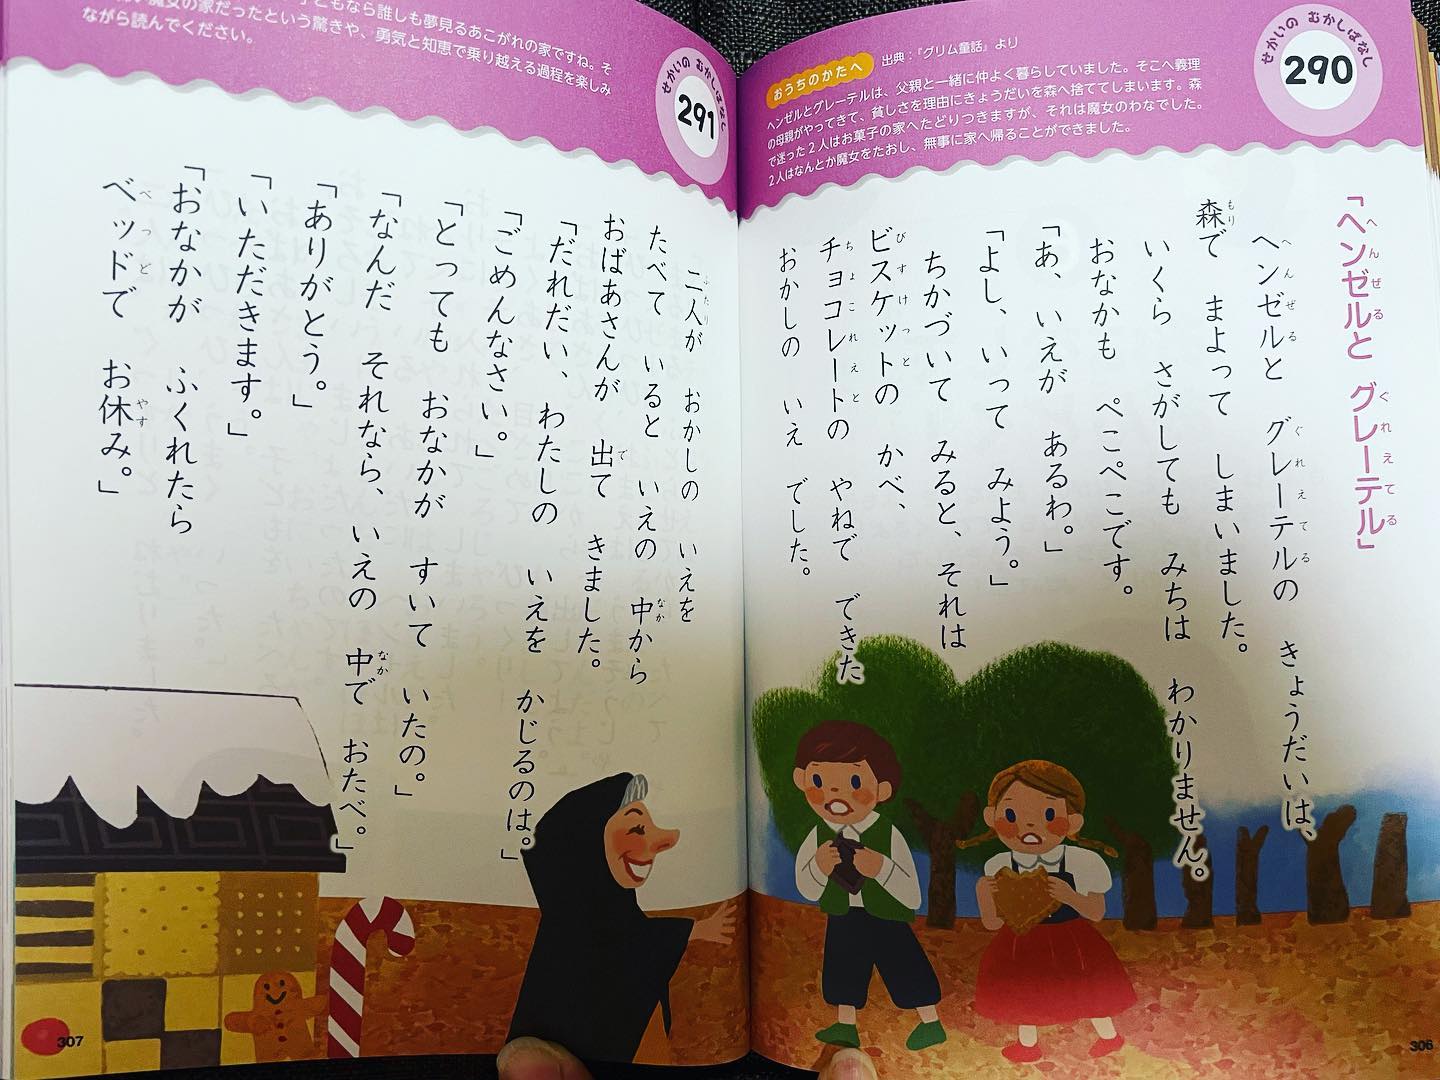 せかいの むかしばなし
290
おうちのかたへ
出典：『グリム童話』より
ヘンゼルとグレーテルは、父親と一緒に仲よく暮らしていました。そこへ義理
の母親がやってきて、貧しさを理由にきょうだいを森へ捨ててしまいます。森
で迷った2人はお菓子の家へたどりつきますが、それは魔女のわなでした。
2人はなんとか魔女をたおし、無事に家へ帰ることができました。
「ヘンゼルと グレーテル」
ヘンゼルと グレーテルの きょうだいは、
森で まよって しまいました。
いくら さがしても みちは わかりません。
おなかも ぺこぺこです。
「あ、いえが あるわ。」
「よし、いって みよう。」
ちかづいて みると、それは
ビスケットの かべ、
チョコレートの やねで できた
おかしの いえ でした。
306
せかいの むかしばなし
291
どもなら誰しも夢見るあこがれの家ですね。そ
魔女の家だったという驚きや、勇気と知恵で乗り越える過程を楽しみ
ながら読んでください。
二人が おかしの いえを
たべて いると いえの 中から
おばあさんが 出て きました。
「だれだい、わたしの いえを かじるのは。」
「ごめんなさい。」
「とっても おなかが すいて いたの。」
「なんだ それなら、いえの 中で おたべ。」
「ありがとう。」
「いただきます。」
「おなかが ふくれたら
ベッドで お休み。」
307